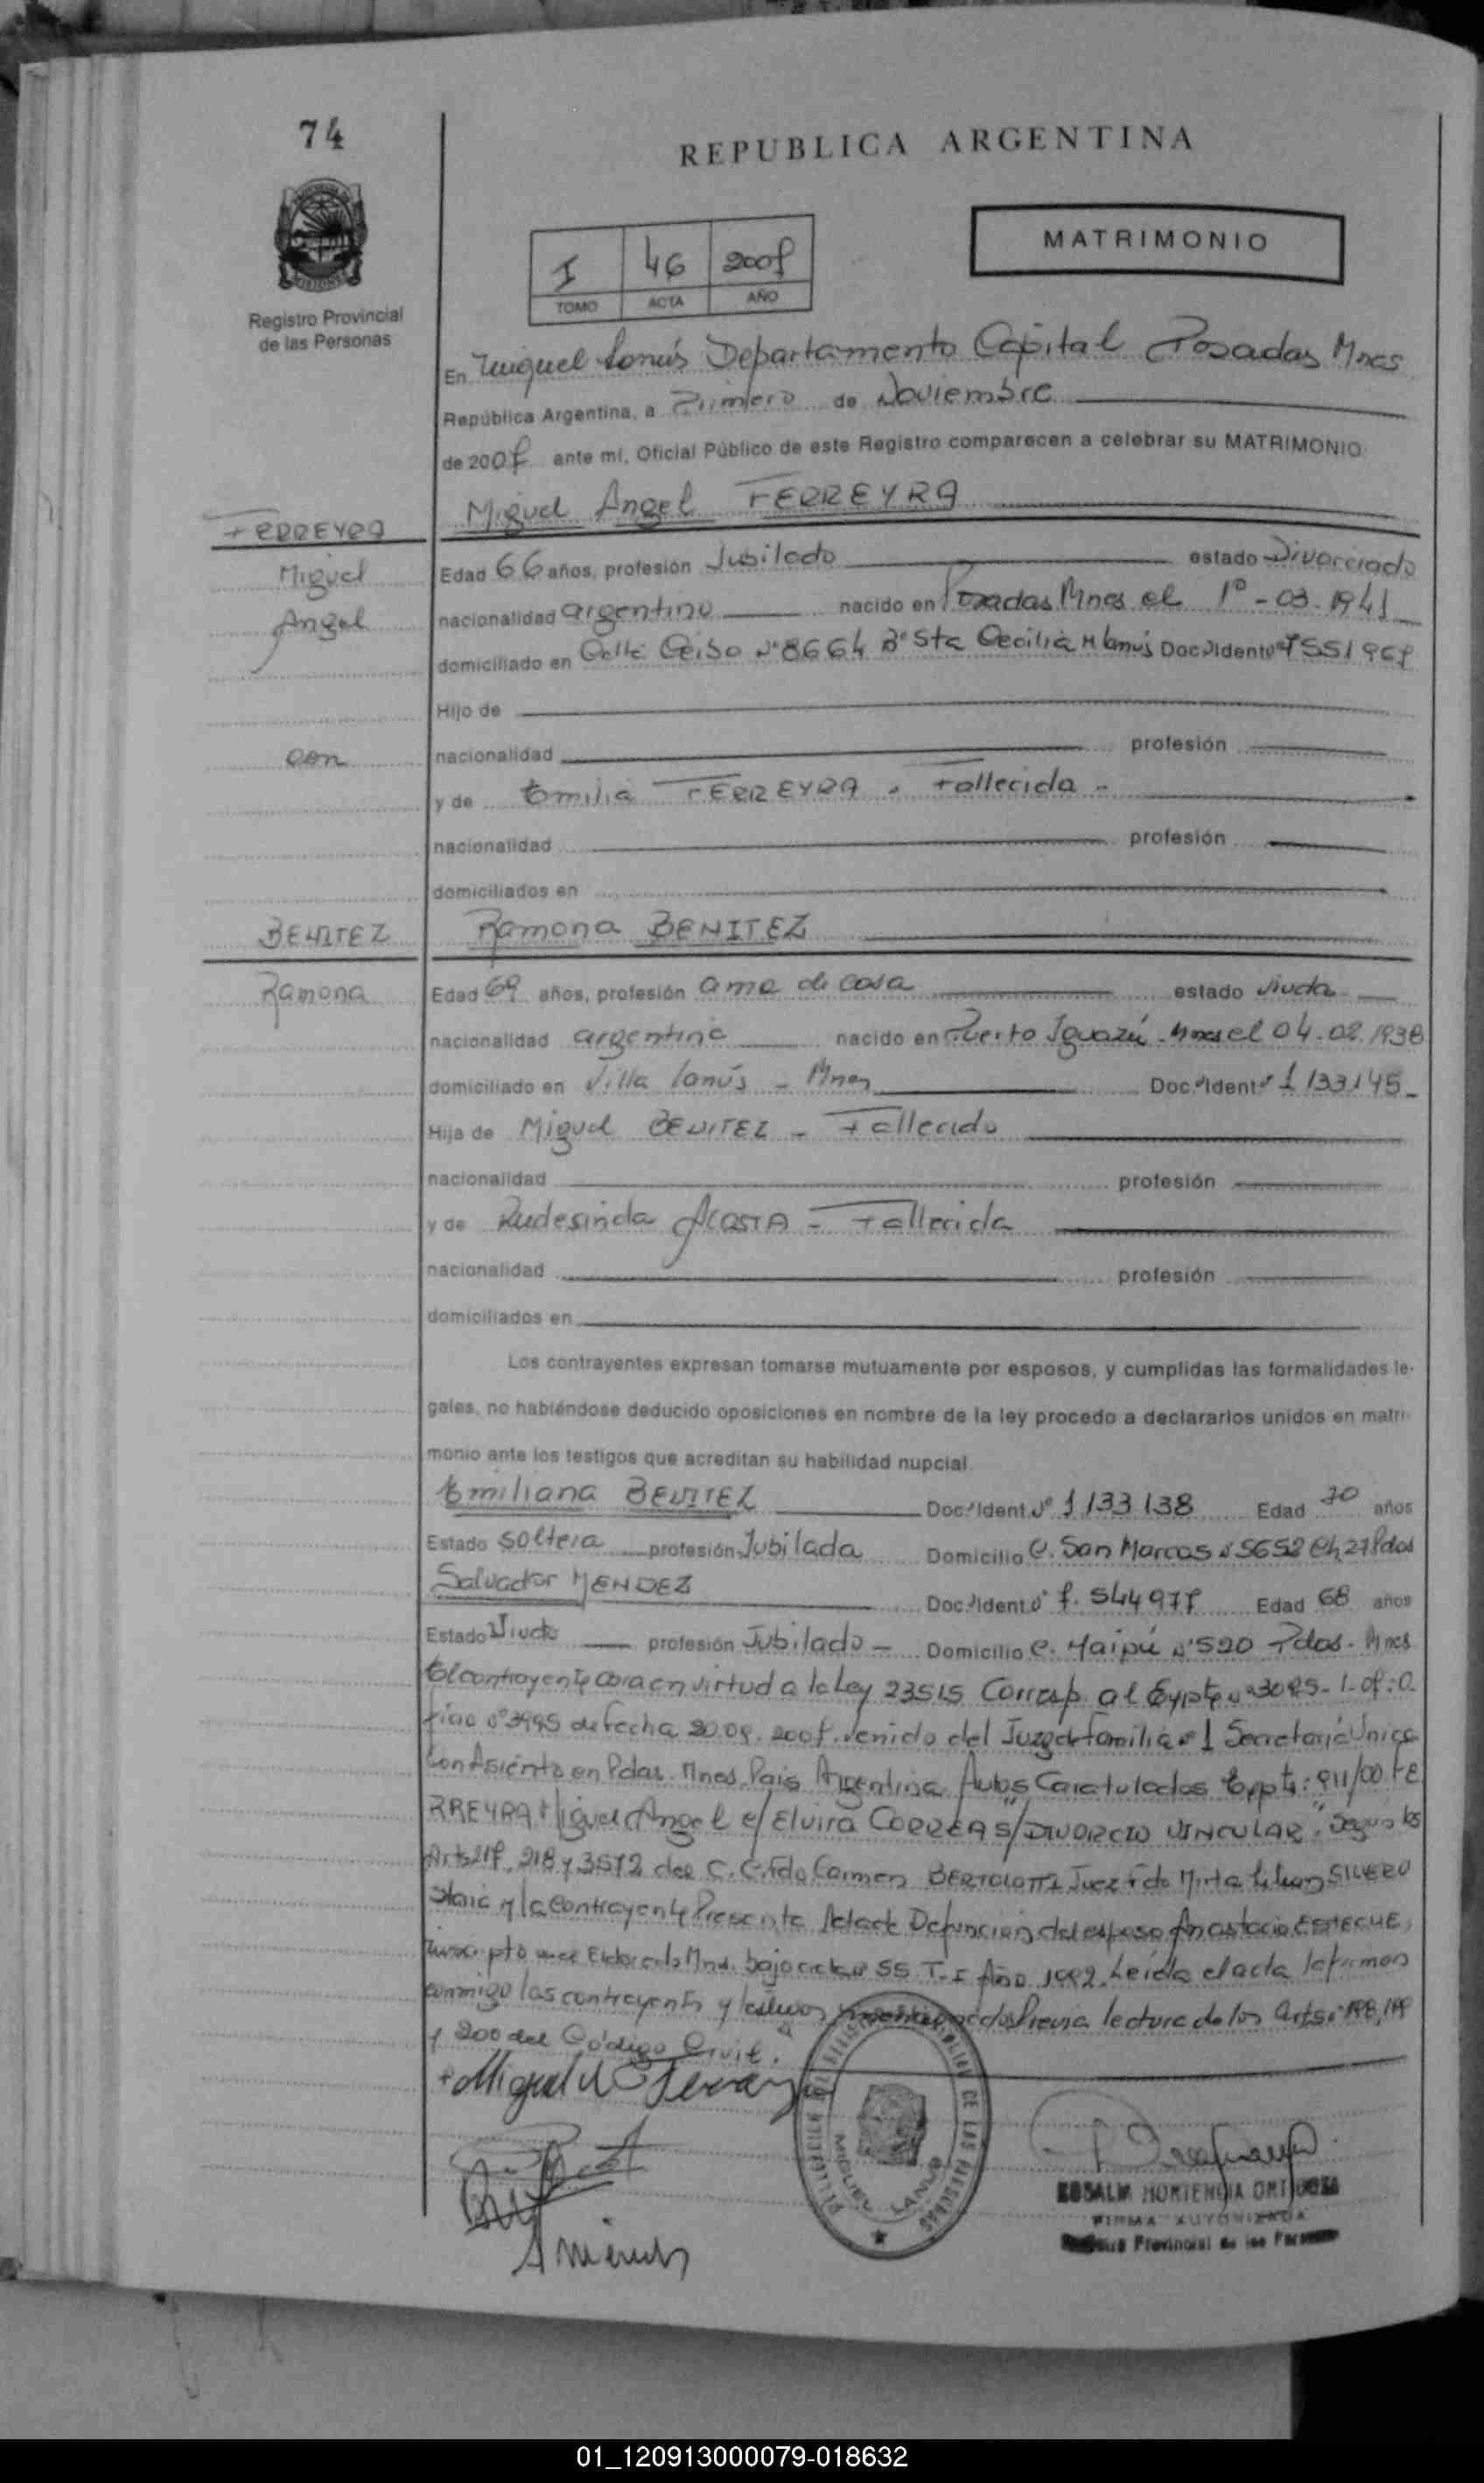 74
REPUBLICA ARGENTINA
MATRIMONIO
I 46 2007
TOMO ACTA AÑO
Registro Provincial
de las Personas
En Miguel Lanús Departamento Capital Posadas Mnes
República Argentina, a Primero de Noviembre
de 2007 ante mí, Oficial Público de este Registro comparecen a celebrar su MATRIMONIO
FERREYRA
Miguel
Angel
con
BENITEZ
Ramona
Miguel Angel FERREYRA
Edad 66 años, profesión Jubilado estado Divorciado
nacionalidad argentino nacido en Posadas Mnes el 1º-03-1941
domiciliado en Calle Ceibo Nº 8664 Bº Sta Cecilia M Lanús Doc Ident Nº 7551967
Hijo de
nacionalidad profesión
y de Emilia FERREYRA - Fallecida -
nacionalidad profesión
domiciliados en
Ramona BENITEZ
Edad 69 años, profesión ama de casa estado viuda
nacionalidad argentina nacido en Puerto Iguazú - Mnes el 04-02-1938
domiciliado en Villa Lanús - Mnes Doc Ident 1133145
Hija de Miguel BENITEZ - Fallecido
nacionalidad profesión
y de Rudesinda ACOSTA - Fallecida
nacionalidad profesión
domiciliados en
Los contrayentes expresan tomarse mutuamente por esposos, y cumplidas las formalidades le-
gales, no habiéndose deducido oposiciones en nombre de la ley procedo a declararlos unidos en matri-
monio ante los testigos que acreditan su habilidad nupcial.
Emiliana BENITEZ Doc Ident Nº 1133138 Edad 70 años
Estado soltera profesión Jubilada Domicilio C. San Marcos Nº 5652 Ch 27 Pdas
Salvador MENDEZ Doc Ident Nº 7.544977 Edad 68 años
Estado Viudo profesión Jubilado - Domicilio C. Maipú Nº 520 Pdas - Mnes
El contrayente en virtud a la Ley 23515 Corresp. al Expte Nº 3095-1-07: O
ficio Nº 3995 de fecha 2007 venido del Juzg de familia Nº 1 Secretaría Única
con Asiento en Pdas. Mnes. Pais Argentina Autos Caratulados Expte: 911/00 FE
RREYRA Miguel Angel c/ Elvira CORREAS "/DIVORCIO VINCULAR". Según los
Arts 217, 218 y 3572 del C.C. Fdo Carmen BERTOLOTTI Juez Fdo Mirta Lilian SILVERO
y la contrayente Presenta Acta de Defuncion del esposo Anastacio ESTECHE,
Inscripto en Eldorado Mnes. bajo acta Nº 55 T. I Año 1992. Leída el acta la firman
conmigo los contrayentes y testigos Previa lectura de los Arts. 198, 199
y 200 del Código Civil.
MIGUEL LANUS
FIRMA AUTORIZADA
Registro Provincial de las Personas
01_120913000079-018632